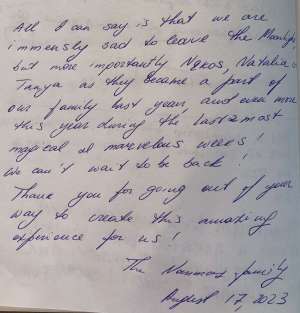 All I can say is that we are
immensely sad to leave the
but more importantly Nikos, Natalia &
Tanya as they became a part of
our family last year, and even more
this year during the last 2 most
magical and marvelous weeks!
We can't wait to be back!
Thank you for going out of your
way to create this amazing
experience for us!
The family
August 17, 2023